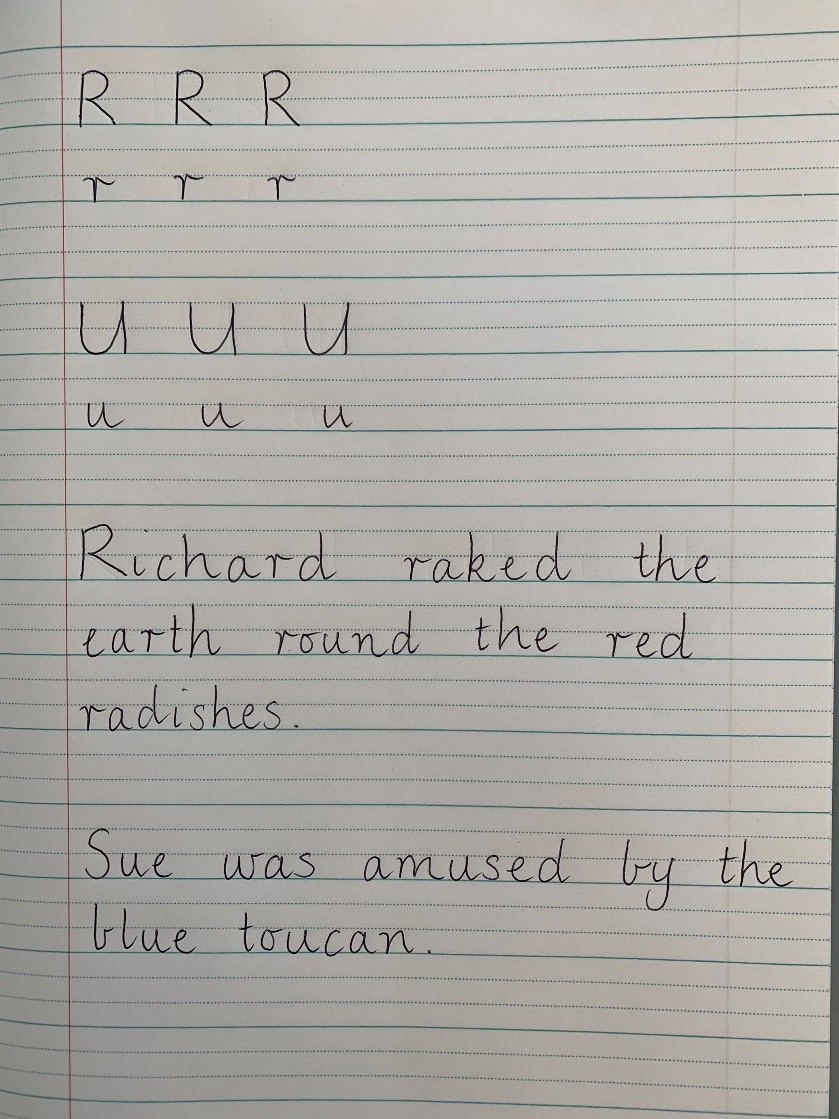 R R R
r r r
U U U
u u u
Richard raked the
earth round the red
radishes.
Sue was amused by the
blue toucan.